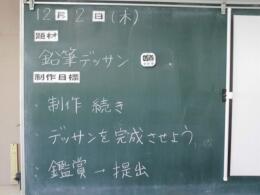 12月2日(木)
題材
鉛筆デッサン
制作目標
・制作 続き
・デッサンを完成させよう
・鑑賞→提出